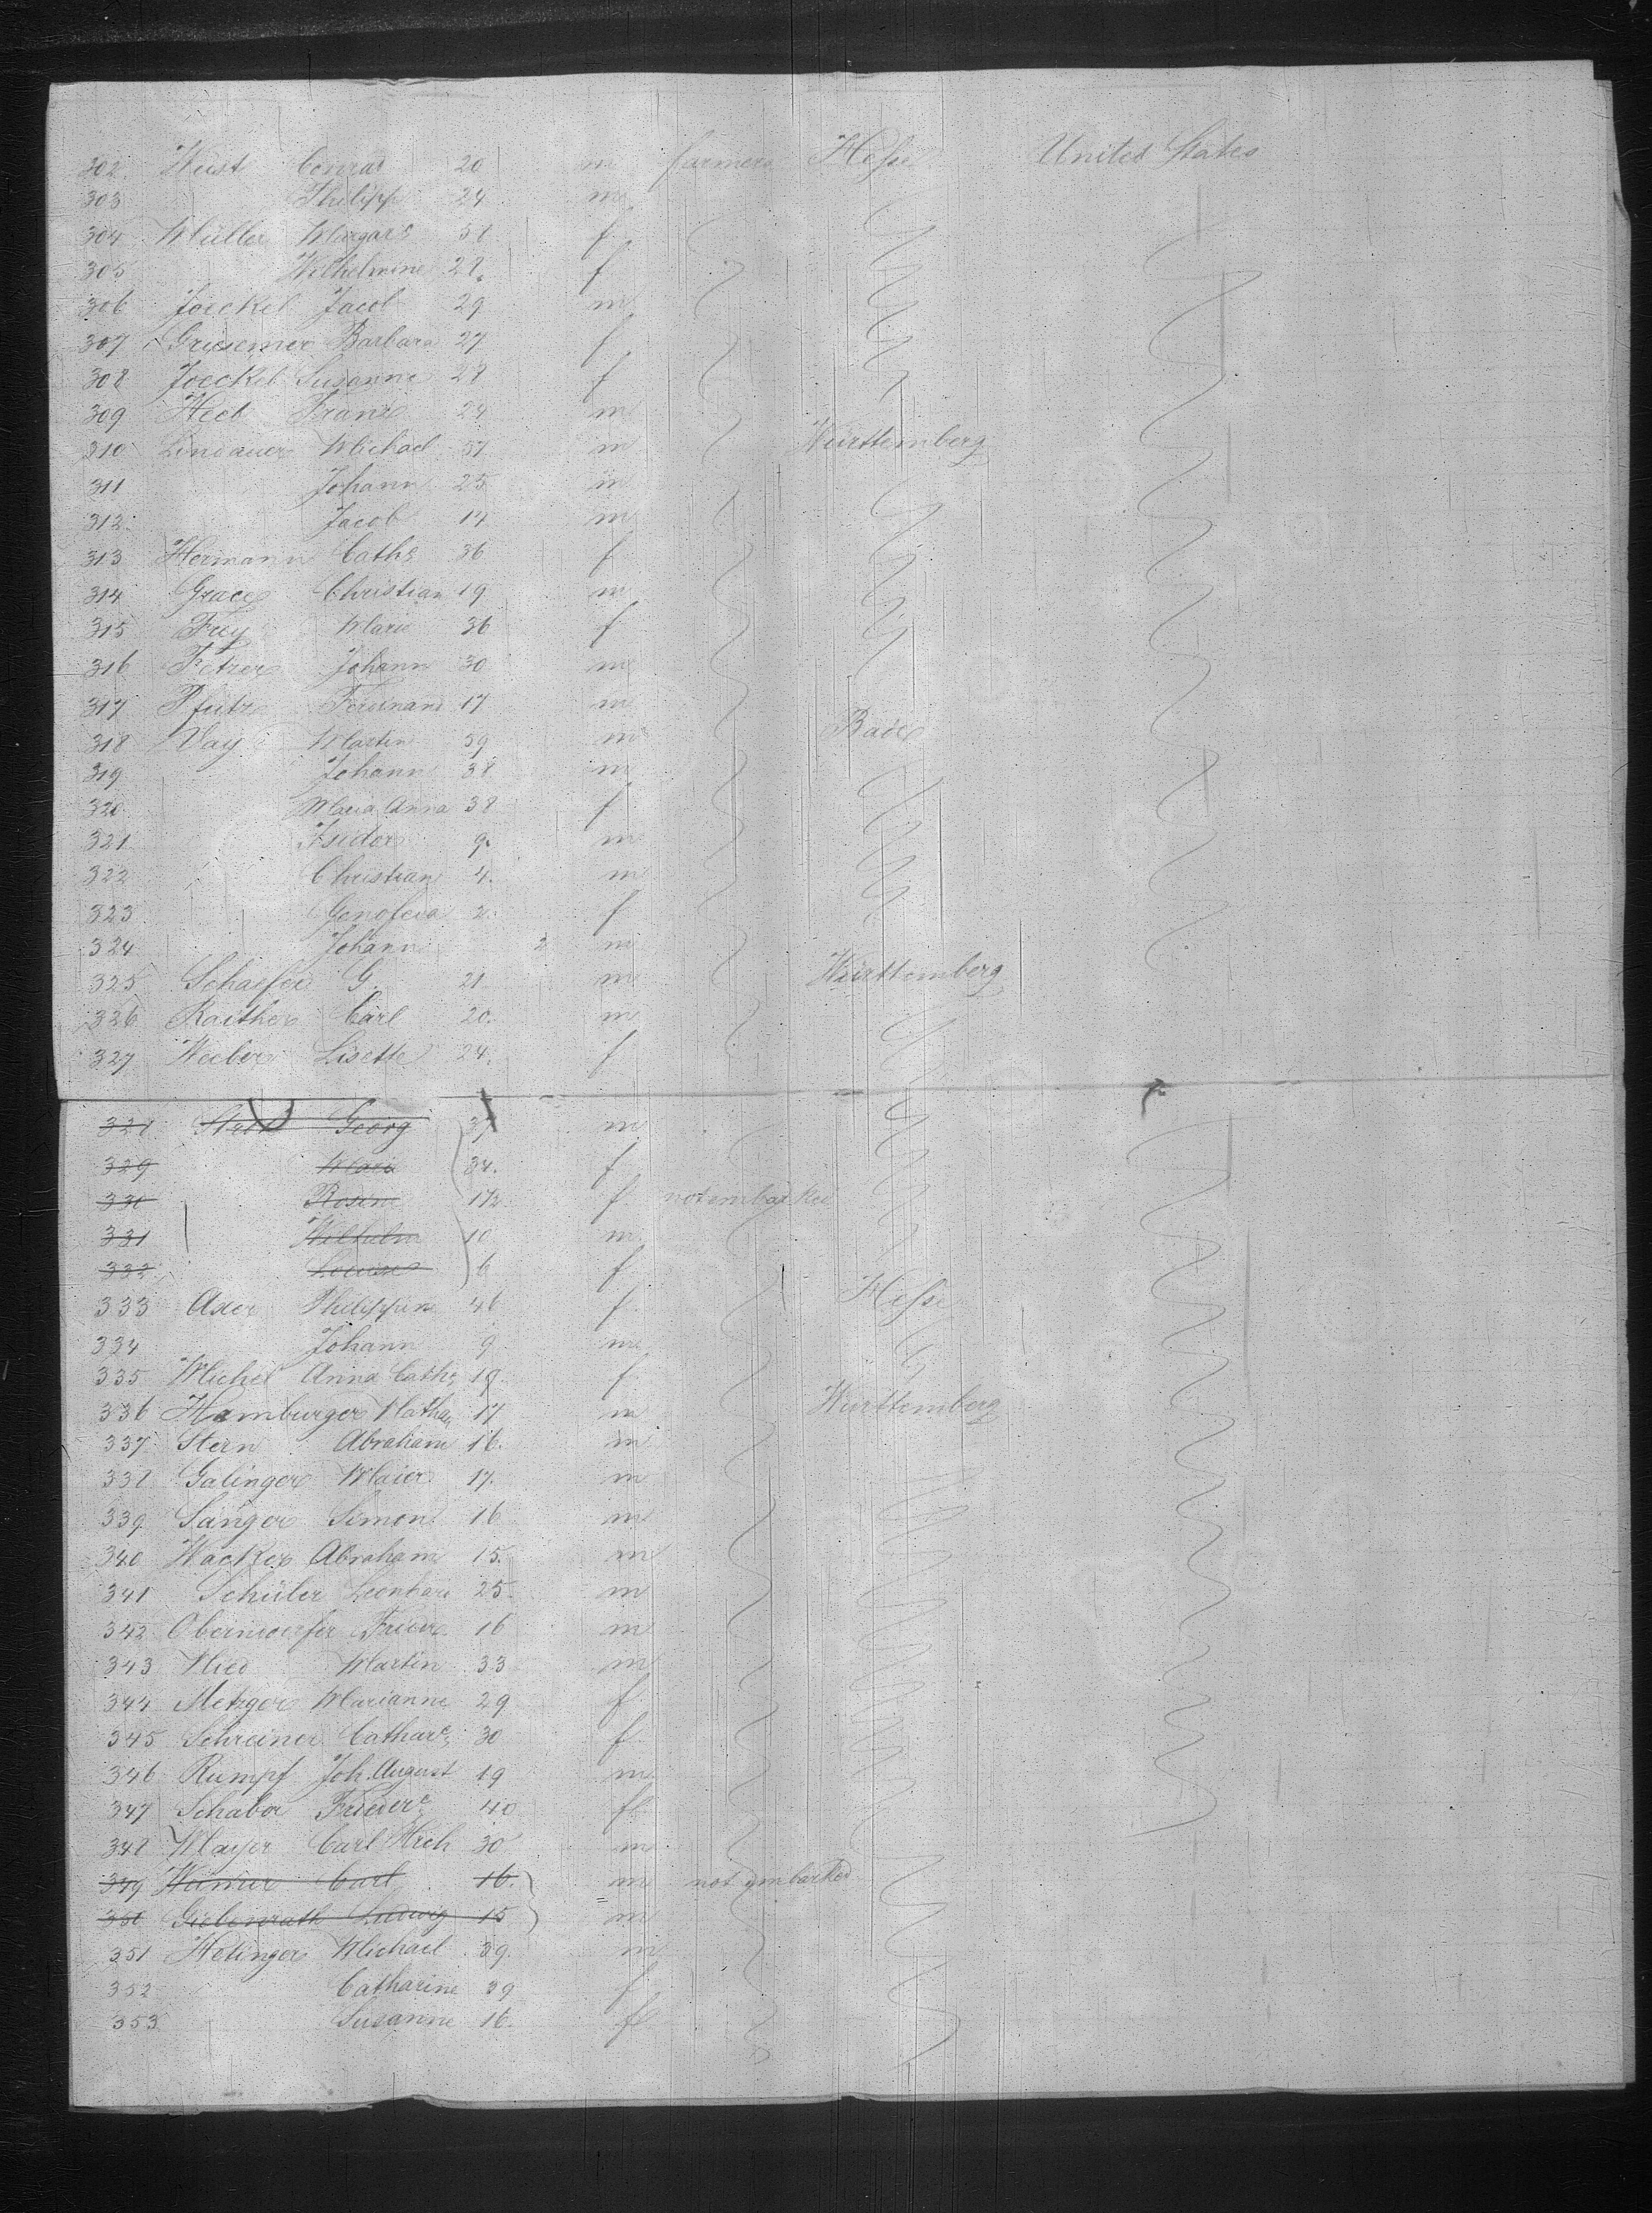 302. Wust Conrad 20 m farmers Hesse United States
303 Philipp 24 m
304 Müller Margar: 51 f
305 Wilhelmine 28. f
306 Joeckel Jacob 29 m
307 Griesemer Barbara 27 f
308 Joeckel Susanne 28 f
309 Heck Franz 24 m
310 Lindauer Michael 57 m Württemberg
311 Johann 25 m
312. Jacob 17 m
313 Hermann Cath: 36 f
314 Christian 19 m
315 Frey Marie 36 f
316 Fetzer Johann 30 m
317 Ferdinand 17 m
318 Martin 39 m Baden
319 Johann 38 m
320 Maria Anna 38 f
321 Isidor 9. m
322 Christian 4. m
323 Genofeva 2. f
324 Johann 2 m
325 Schaefer G. 21 m Württemberg
326 Raither Carl 20. m
327 Weeber Lisette 24. f
328 Georg 37 m
329 Marie 34. f
330 Rosine 1/2 f not embarked
331 Wilhelm 10 m
332 Louise 6 f
333 Philippin 46 f Hesse
334 Johann 9 m
335 Michel Anna Cath: 19. f
336 Hamburger Nathan 17 m Württemberg
337 Stern Abraham 16. m
338 Galinger Maier 17. m
339 Sänger Simon 16 m
340 Wacker Abraham 15. m
341 Schüler Leonhard 25. m
342 Oberndoerfer Frieder. 16 m
343 Nied Martin 33 m
344 Metzger Marianne 29 f
345 Schreiner Cathar: 30 f
346 Rumpf Joh. August 19 m
347 Schaber Frieder: 40 f
348 Mayer Carl Hrch 30 m
349 Carl 16. m not embarked
350 Giebenrath Ludwig 15 m
351 Hetinger Michael 39. m
352 Catharine 39 f
353 Susanne 16. f